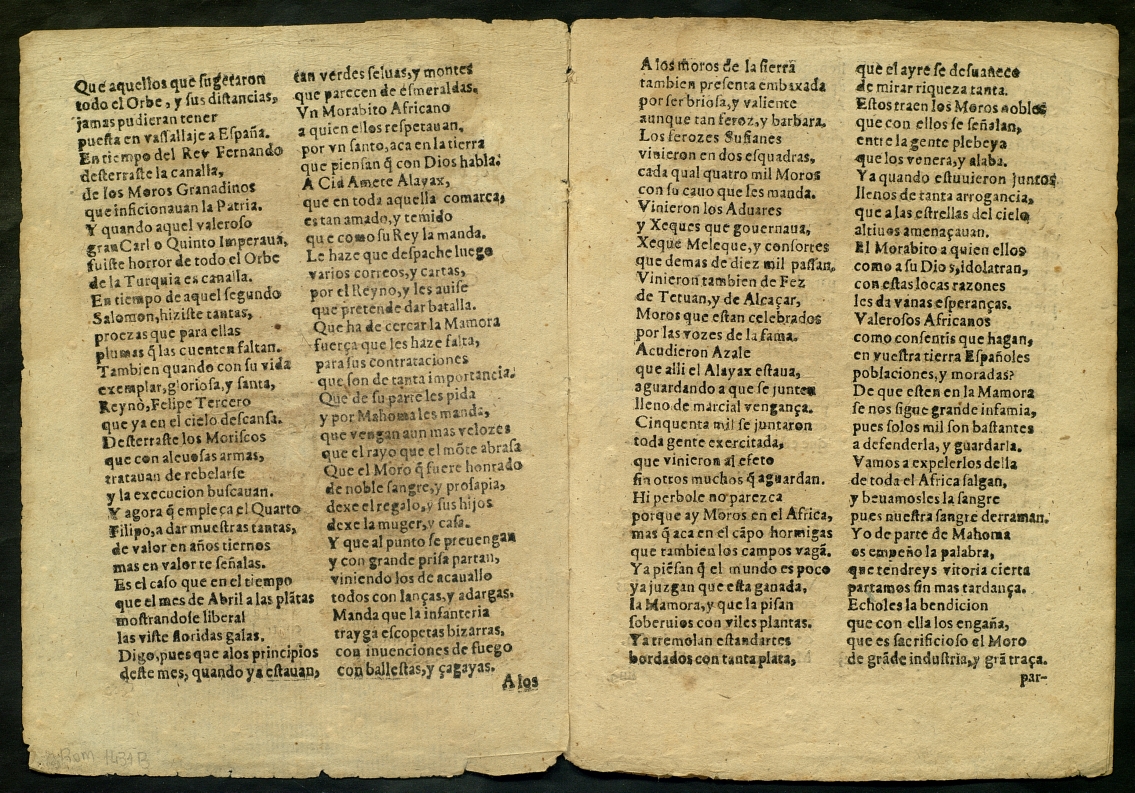 Que aquellos que sugetaron
todo el Orbe, y sus distancias,
jamas pudieran tener
puesta en vassallaje a España.
En tiempo del Rey Fernando
desterraste la canalla,
de los Moros Granadinos
que inficionauan la Patria.
Y quando aquel valeroso
gran Carlo Quinto Imperaua,
fuiste horror de todo el Orbe
de la Turquia es canalla.
En tiempo de aquel segundo
Salomon, hiziste tantas,
proezas que para ellas
plumas q̃ las cuenten faltan.
Tambien quando con su vida
exemplar, gloriosa, y santa,
Reynò, Felipe Tercero
que ya en el cielo descansa.
Desterraste los Moriscos
que con aleuosas armas,
tratauan de rebelarse
y la execucion buscauan.
Y agora q̃ empieça el Quarto
Filipo, a dar muestras tantas,
de valor en años tiernos
mas en valor te señalas.
Es el caso que en el tiempo
que el mes de Abril a las plãtas
mostrandose liberal
las viste floridas galas.
Digo, pues que a los principios
deste mes, quando ya estauan,
tan verdes seluas, y montes
que parecen de esmeraldas.
Vn Morabito Africano
a quien ellos respetauan,
por vn santo, aca en la tierra
que piensan q̃ con Dios habla.
A Cid Amete Alayax,
que en toda aquella comarca,
es tan amado, y temido
que como su Rey la manda.
Le haze que despache luego
varios correos, y cartas,
por el Reyno, y les auise
que pretende dar batalla.
Que ha de cercar la Mamora
fuerça que les haze falta,
para sus contrataciones
que son de tanta importancia.
Que de su parte les pida
y por Mahoma les manda,
que vengan aun mas velozes
que el rayo que el mõte abrasa
Que el Moro q̃ fuere honrado
de noble sangre, y prosapia,
dexe el regalo, y sus hijos
dexe la muger, y casa.
Y que al punto se preuengan
y con grande prisa partan,
viniendo los de acauallo
todos con lanças, y adargas.
Manda que la infanteria
trayga escopetas bizarras,
con inuenciones de fuego
con ballestas, y çagayas.
A los
A los moros de la sierra
tambien presenta embaxada
por ser briosa, y valiente
aunque tan feroz, y barbara.
Los ferozes Sufianes
vinieron en dos esquadras,
cada qual quatro mil Moros
con su cauo que les manda.
Vinieron los Aduares
y Xeques que gouernaua,
Xeque Meleque, y consortes
que demas de diez mil passan.
Vinieron tambien de Fez
de Tetuan, y de Alcaçar,
Moros que estan celebrados
por las vozes de la fama.
Acudieron Azale
que alli el Alayax estaua,
aguardando a que se junten
lleno de marcial vengança.
Cinquenta mil se juntaron
toda gente exercitada,
que vinieron al efeto
sin otros muchos q̃ aguardan.
Hiperbole no parezca
porque ay Moros en el Africa,
mas q̃ aca en el cãpo hormigas
que tambien los campos vagã.
Ya piẽsan q̃ el mundo es poco
ya juzgan que esta ganada,
la Mamora, y que la pisan
soberuios con viles plantas.
Ya tremolan estandartes
bordados con tanta plata,
que el ayre se desuanece
de mirar riqueza tanta.
Estos traen los Moros nobles
que con ellos se señalan,
entre la gente plebeya
que los venera, y alaba.
Ya quando estuuieron juntos
llenos de tanta arrogancia,
que a las estrellas del cielo
altiuos amenaçauan.
El Morabito a quien ellos
como a su Dios, idolatran,
con estas locas razones
les da vanas esperanças.
Valerosos Africanos
como consentis que hagan,
en vuestra tierra Españoles
poblaciones, y moradas?
De que esten en la Mamora
se nos sigue grande infamia,
pues solos mil son bastantes
a defenderla, y guardarla.
Vamos a expelerlos della
de toda el Africa salgan,
y beuamosles la sangre
pues nuestra sangre derraman.
Yo de parte de Mahoma
os empeño la palabra,
que tendreys vitoria cierta
partamos sin mas tardança.
Echoles la bendicion
que con ella los engaña,
que es sacrificioso el Moro
de grãde industria, y grã traça.
par-
Rom 1431 B